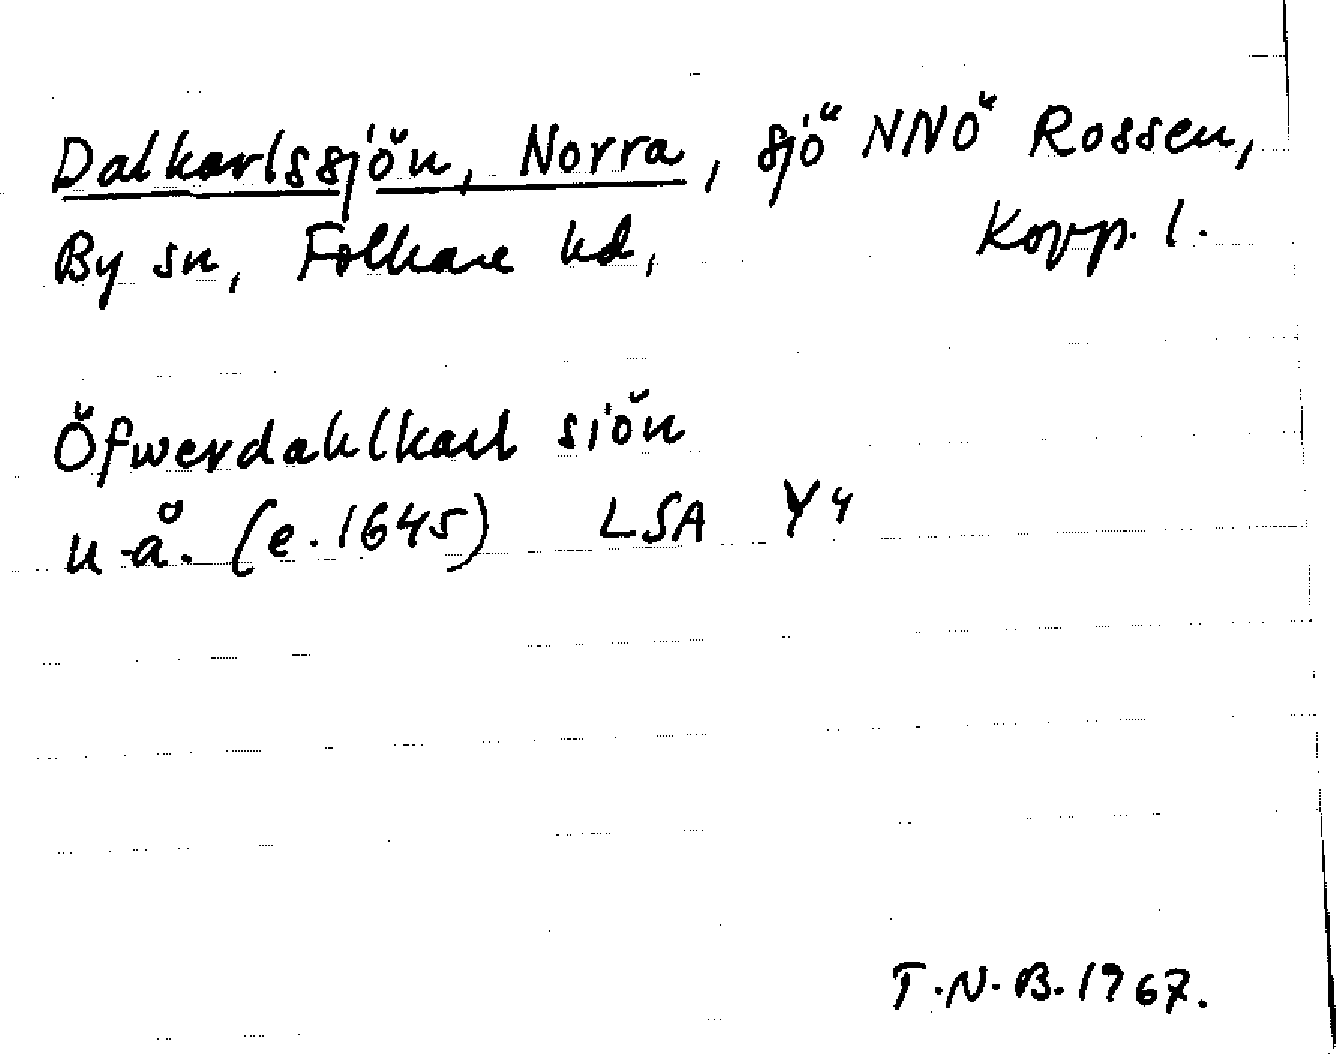 Dalkarlssjön, Norra, sjö NNÖ Rossen,
By sn, Folkare hd, Kopp. l.
Öfwerdahlkarl siön
u.å. (e. 1645) LSA Y4
T.N.B. 1967.